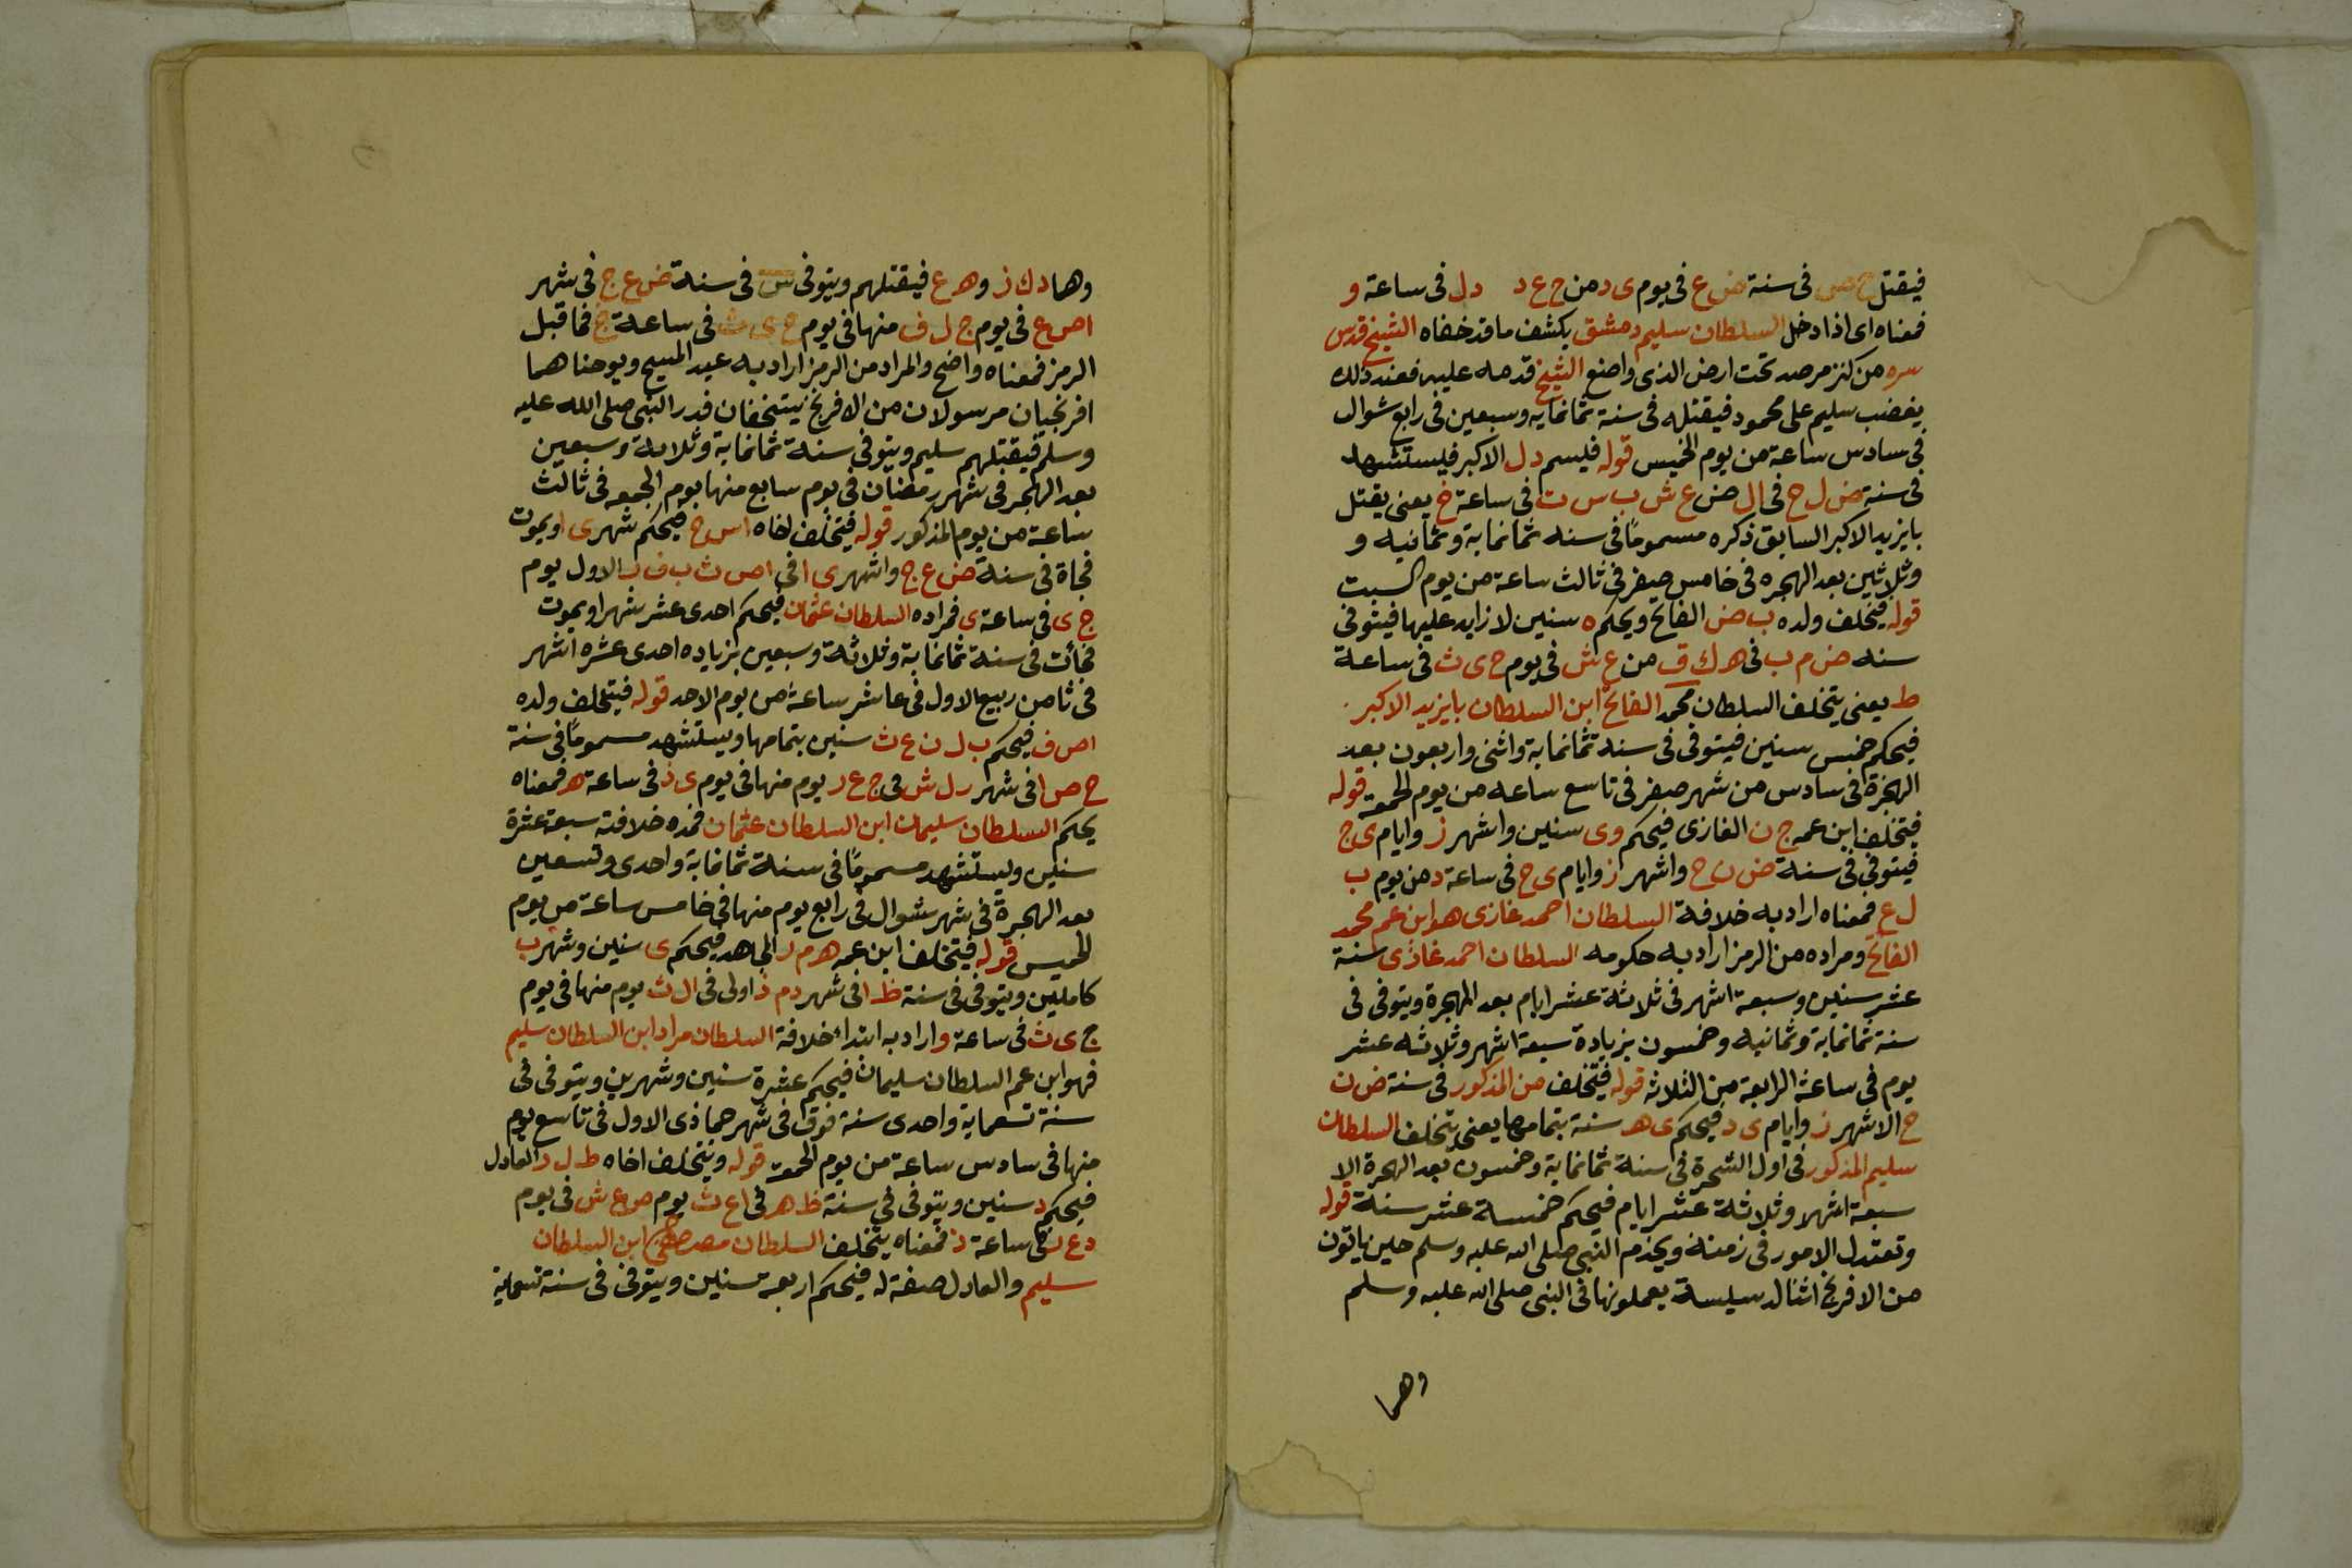 فيقتل ح ص فى سنة ض ع فى يوم ى د من ج ع د د ل فى ساعة و
فمعناه اى اذا دخل السلطان سليم دمشق يكشف ما قد خفاه الشيخ قدس
سره من كنز مرصد تحت ارض الذى واضع الشيخ قدمه عليه فعند ذلك
يغضب سليم على محمود فيقتله فى سنة ثمانمايه وسبعين فى رابع شوال
فى سادس ساعة من يوم الخميس قوله فليسم د ل الاكبر فليستشهد
فى سنة ض ل ح فى ال ض ع ش ب س ت فى ساعة خ يعنى يقتل
بايزيد الاكبر السابق ذكره مسموماً فى سنه ثمانماية وثمانيه و
وثلاثين بعد الهجره فى خامس صفر فى ثالث ساعة من يوم السبت
قوله فيخلف ولده ب ض الفاتح ويحكم ه سنين لا زايد عليها فيتوفى
سنه ض م ب فى ه ك ق من ع ش فى يوم ج ى ث فى ساعة
ط يعنى يتخلف السلطان محمد الفاتح ابن السلطان بايزيد الاكبر
فيحكم خمس سنين فيتوفى فى سنة ثمانماية واثنى واربعون بعد
الهجرة فى سادس من شهر صفر فى تاسع ساعه من يوم الجمعة قوله
فيتخلف ابن عمه ج ن الغازى فيحكم وى سنين واشهر ز وايام ى ج
فيتوفى فى سنة ض ن ح واشهر ز وايام ى ج فى ساعة د من يوم ب
ل ع فمعناه اراد به خلافة السلطان احمد غازى هو ابن عم محمد
الفاتح ومراده من الرمز اراد به حكومه السلطان احمد غازى سنة
عشر سنين وسبعة اشهر فى ثلاثة عشر ايام بعد الهجرة ويتوفى فى
سنة ثمانماية وثمانيه وخمسون بزيادة سبعة اشهر وثلاثه عشر
يوم فى ساعة الرابعة من الثلاثه قوله فيتخلف من المذكور فى سنة ض ن
ح الا شهر ز وايام ى د فيحكم ى ه سنة بتمامها يعنى يتخلف السلطان
سليم المذكور فى اول الشجرة فى سنة ثمانماية وخمسون بعد الهجرة الا
سبعة اشهر وثلاثة عشر ايام فيحكم خمسة عشر سنة قوله
وتعتدل الامور فى زمنة ويخدم النبى صلى الله عليه وسلم حين ياتون
من الافرنج اثنا لدسيسة يعملونها فى النبى صلى الله عليه وسلم
وهما
وهما د ك ز و ه ع فيقتلهم ويتوفى فى سنة ض ع ج فى شهر
ا ص ع فى يوم ج ل ف منها فى يوم ج ى ث فى ساعة ج فما قبل
الرمز فمعناه واضح والمراد من الرمز اراد به عبد المسيح ويوحنا هما
افرنجيان مرسولان من الافرنج يستخفان قدر النبى صلى الله عليه
وسلم فيقتلهم سليم ويتوفى سنة ثمانماية وثلاثة وسبعين
بعد الهجر فى شهر رمضان فى يوم سابع منها يوم الجمعه فى ثالث
ساعة من يوم المذكور قوله فيتخلف اخاه ا س ج فيحكم شهر ى ا ويموت
فجاة فى سنة ض ع ج واشهر ى ا فى ا ص ث ب ف ر الاول يوم
ج ى فى ساعة ى فمراده السلطان عثمان فيحكم احدى عشر شهرا ويموت
فجأت فى سنة ثمانماية وثلاثة وسبعين بزياده احدى عشره اشهر
فى ثامن ربيع الاول فى عاشر ساعة من يوم الاحد قوله فيتخلف ولده
ا ص ف فيحكم ب ل ن ع ث سنين بتمامها ويستشهد مسموماً فى سنة
ح ص ا فى شهر ر ل ش فى ج ع د يوم منها فى يوم ى ذ فى ساعة ه فمعناه
يحكم السلطان سليمان ابن السلطان عثمان فمده خلافته سبعة عشرة
سنين ويستشهد مسموماً فى سنة ثمانماية واحدى وتسعين
بعد الهجرة فى شهر شوال فى رابع يوم منها فى خامس ساعة من يوم
الخميس قوله فيتخلف ابن عمه ه م ر المجاهد فيحكم ى سنين وشهر ب
كاملتين ويتوفى فى سنة ظ ا فى شهر د م ذ اولى فى ال ث يوم منها فى يوم
ج ى ث فى ساعة و اراد به ابتداء خلافة السلطان مراد ابن السلطان سليم
فهو ابن عم السلطان سليمان فيحكم عشرة سنين وشهرين ويتوفى فى
سنة تسعماية واحدى سنة فوق فى شهر جماذى الاول فى تاسع يوم
منها فى سادس ساعة من يوم الجمعة قوله ويتخلف اخاه ط ل د العادل
فيحكم د سنين ويتوفى فى سنة ظ ه فى ا ع ث يوم من ع ش فى يوم
د ع ل فى ساعة ذ فمعناه يتخلف السلطان مصطفى ابن السلطان
سليم والعادل صفة له فيحكم اربعة سنين ويتوفى فى سنة تسعماية